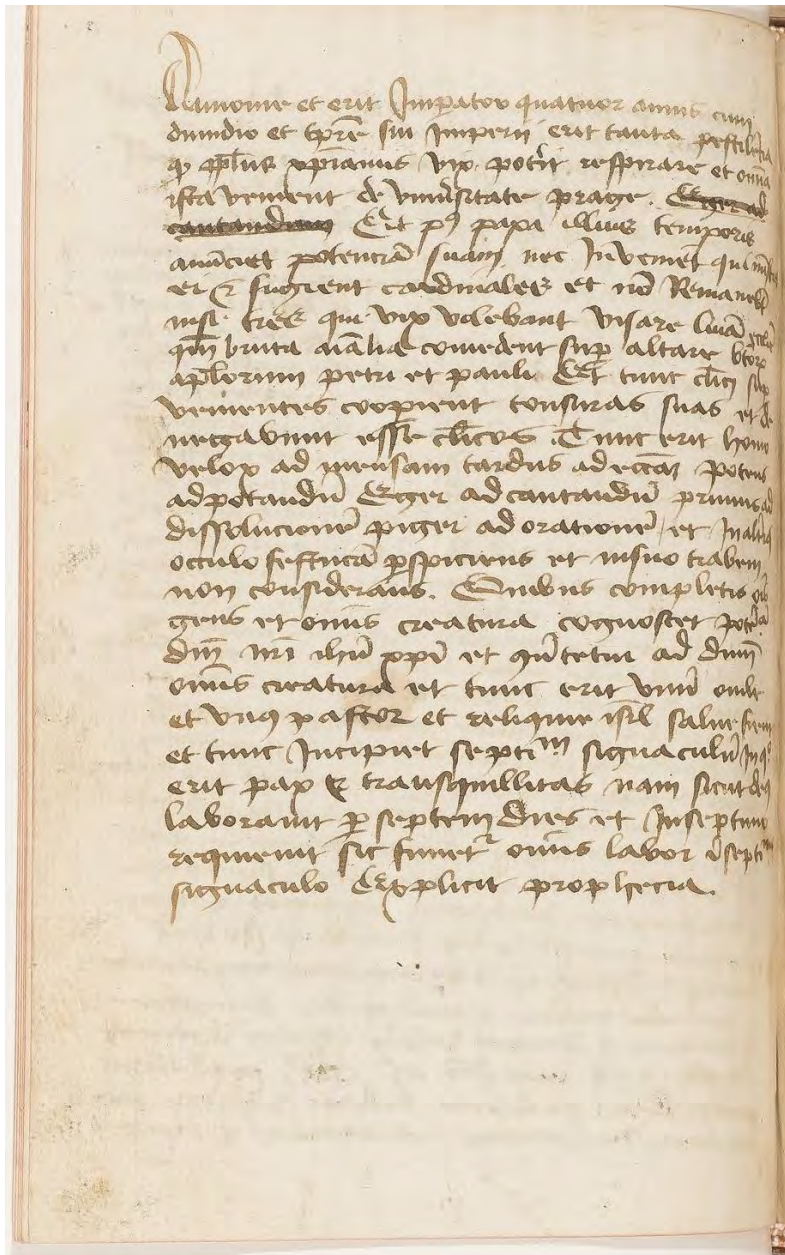 Alamonie et erit Imperator quatuor annis cum
dimidio et tpre sui Imperii erit tanta pestilēcia
q pplus xpianus vix potit respirare et omia
ista venient de vniusitate prage. Eger ad
cantandum Et p9 papa illius temporis
anūciet potenciā suam nec Inveniet qui
ei & fugient cardinales et nō Remanebūt
nisi tres qui vix valebant visare
qm bruta aialia comedent sup altare btorx
aplorum petri et pauli Et tunc clici sup
venientes coopient tonsuras suas et de
negavunt esse clicos Tunc erit homo
velox ad mensam tardus ad eccām potens
ad potandū Eger ad cantandū primus ad
dissolucionē piger ad orationē et In alteris
occulo festucā pspiciens et in suo trabem
non considerans. Quibus completis ois
gens et omnis creatura cognoscet potēciā
dni nri ihū xpi et qūtetur ad dnm
omnis creatura et tunc erit vnū ovile
et vnq pastor et reliquie isrl salve fient
et tunc Incipiet septimm signaculū In qo
erit pax & transquillitas nam sicut deus
laboravit p septem dies et In septimo
requievit sic finietr omnis labor i septimo
signaculo Explicit prophecia.